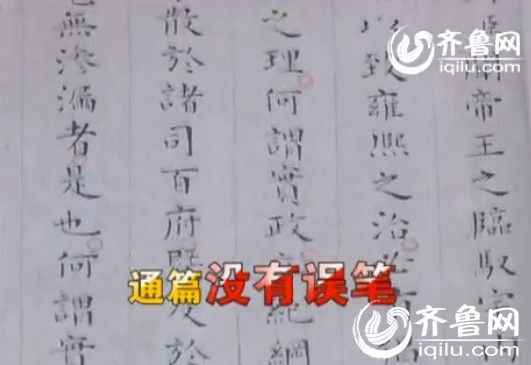 聞帝王之臨馭
以致雍熙之治
之理何謂實政紀綱
散於諸司百府於
無滲漏者是也何謂實
通篇没有误笔
齐鲁网
iqilu.com
齐鲁网
iqilu.com